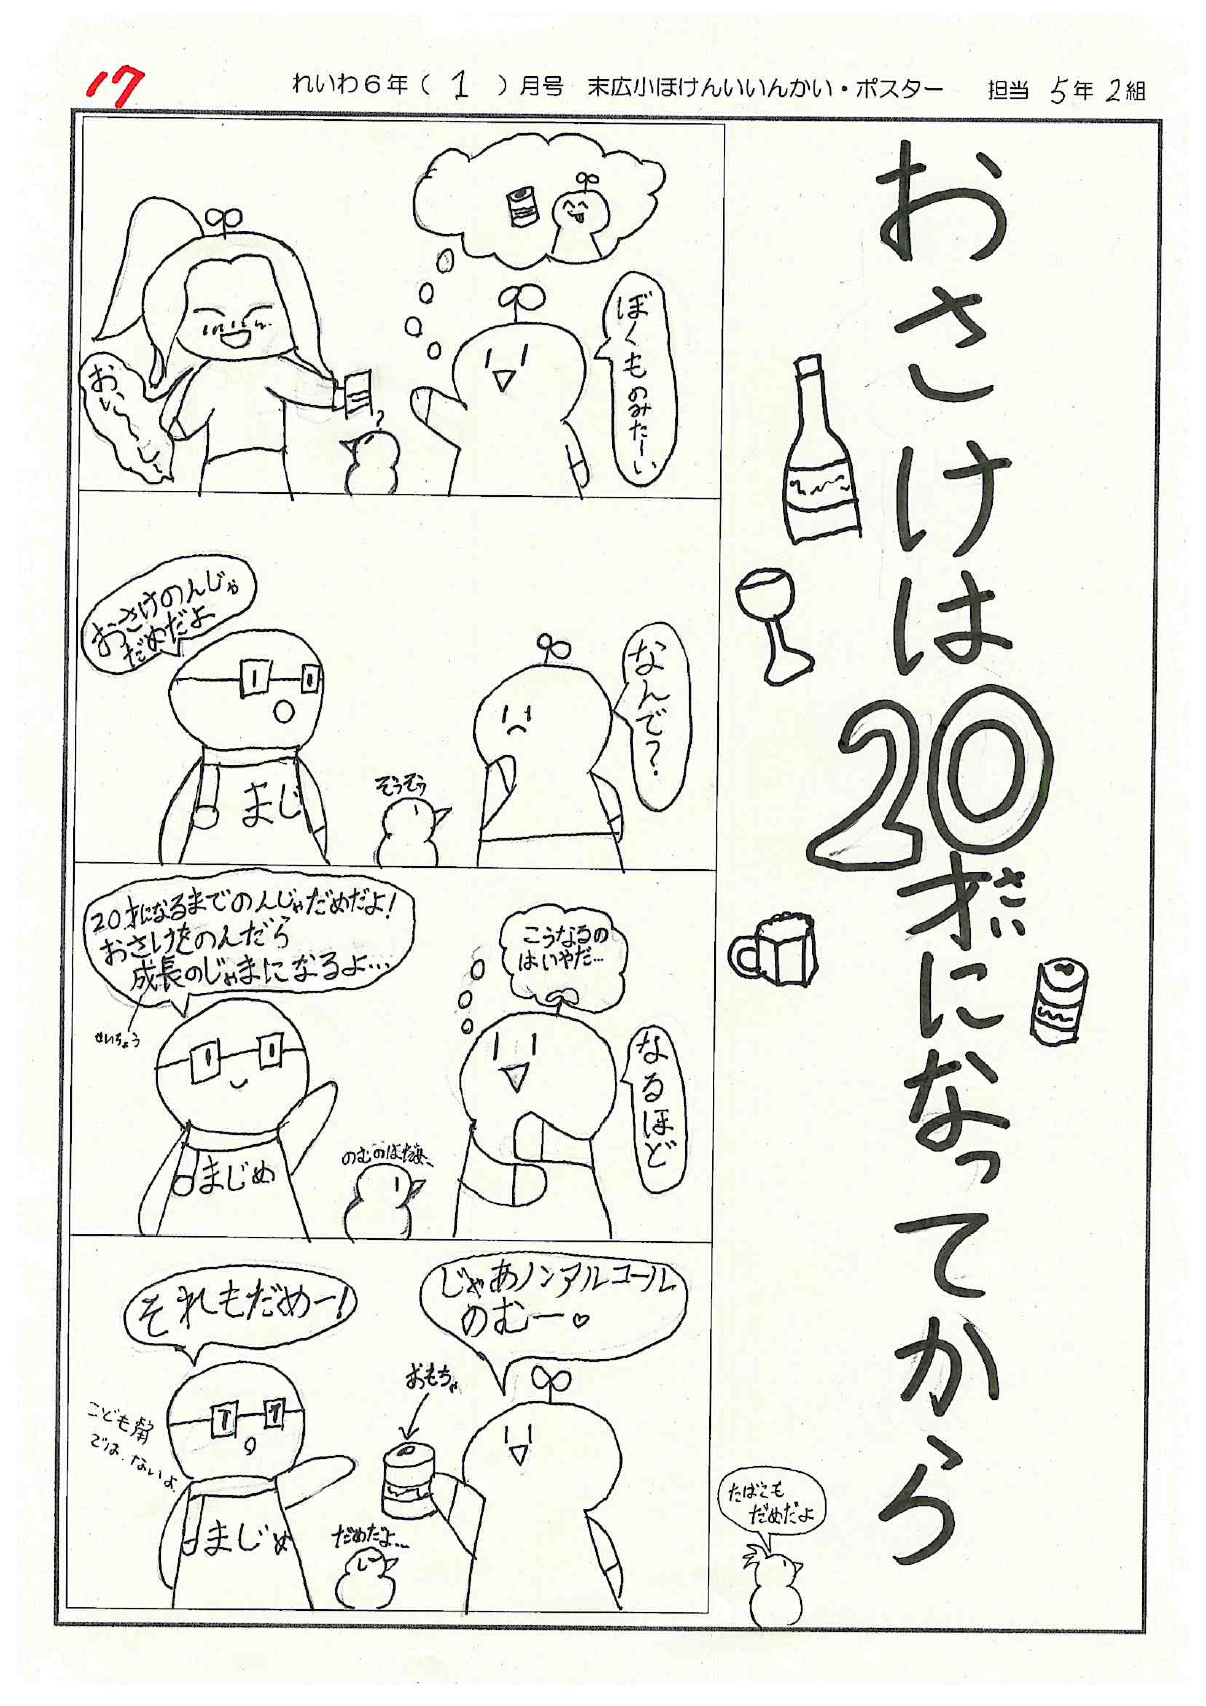 17
れいわ6年(1)月号 末広小ほけんいいんかい・ポスター 担当 5年2組
おさけは20才になってから
さい
ぼくものみたーい
おいしい
?
おさけのんじゃ
だめだよ
なんで?
まじ
そうそう
20才になるまでのんじゃだめだよ!
おさけをのんだら
成長のじゃまになるよ…
せいちょう
こうなるの
はいやだ…
なるほど
まじめ
のむのはだめ
じゃあノンアルコール
のむー♡
それもだめー!
おもちゃ
こども用
ではないよ
まじめ
だめだよ…
たばこも
だめだよ